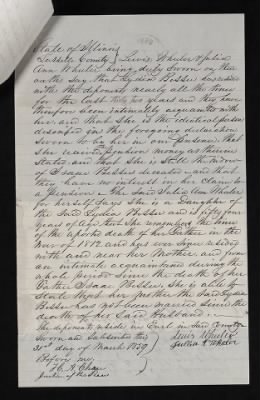 State of Illinois
LaSalle County } Lewis Wheeler & Julia
Ann Wheeler being duly sworn on their
oath say that Lydia Besse has resided
with the deponents nearly all the time
for the last thirty two years and they have
therefore been intimately acquainted with
her and that she is the identical person
described in the foregoing declaration
sworn to by her in our presence that
she resided as above stated
States and that she is still the widow
of Isaac Besse deceased and that
they have no interest in her claim to
a Pension. The said Julia Ann Wheeler
for herself says she is a Daughter of
the said Lydia Besse and is fifty four
years of age that she remembers the time
of the reported death of her Father in the
War of 1812 and has ever since resided
with and near her Mother and from
an intimate acquaintance during the
whole period since the death of her
Father Isaac Besse, she is able to
state that her Mother the said Lydia
Besse has not been married since the
death of her said Husband
the deponents reside in Earl in said County
Sworn and Subscribed this } Lewis Wheeler
31st day of March 1859 } Julia A Wheeler
Before me